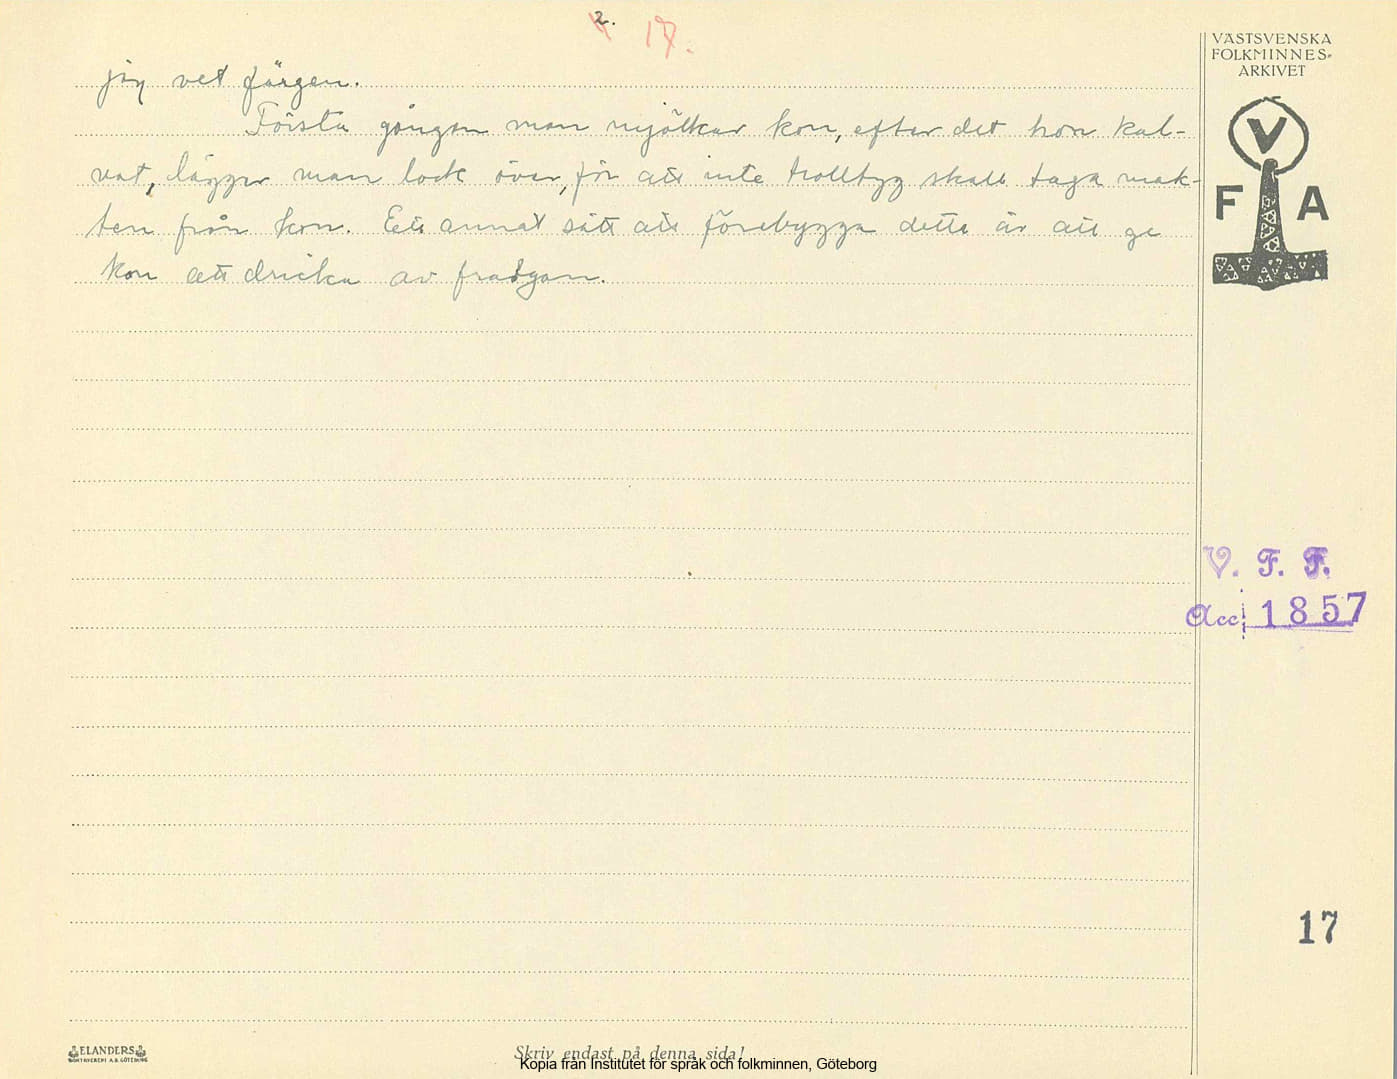 2. 17.
VÄSTSVENSKA
FOLKMINNES-
ARKIVET
V
F A
jag vet färgen.
Första gången man mjölkar kon, efter det hon kal-
vat, lägger man lock över, för att inte trolltyg skall taga mak-
ten från kon. Ett annat sätt att förebygga detta är att ge
kon att dricka av fradgan.
V. F. F.
Acc. 1857
17
ELANDERS
BOKTRYCKERI A.B. GÖTEBORG
Skriv endast på denna sida!
Kopia från Institutet för språk och folkminnen, Göteborg